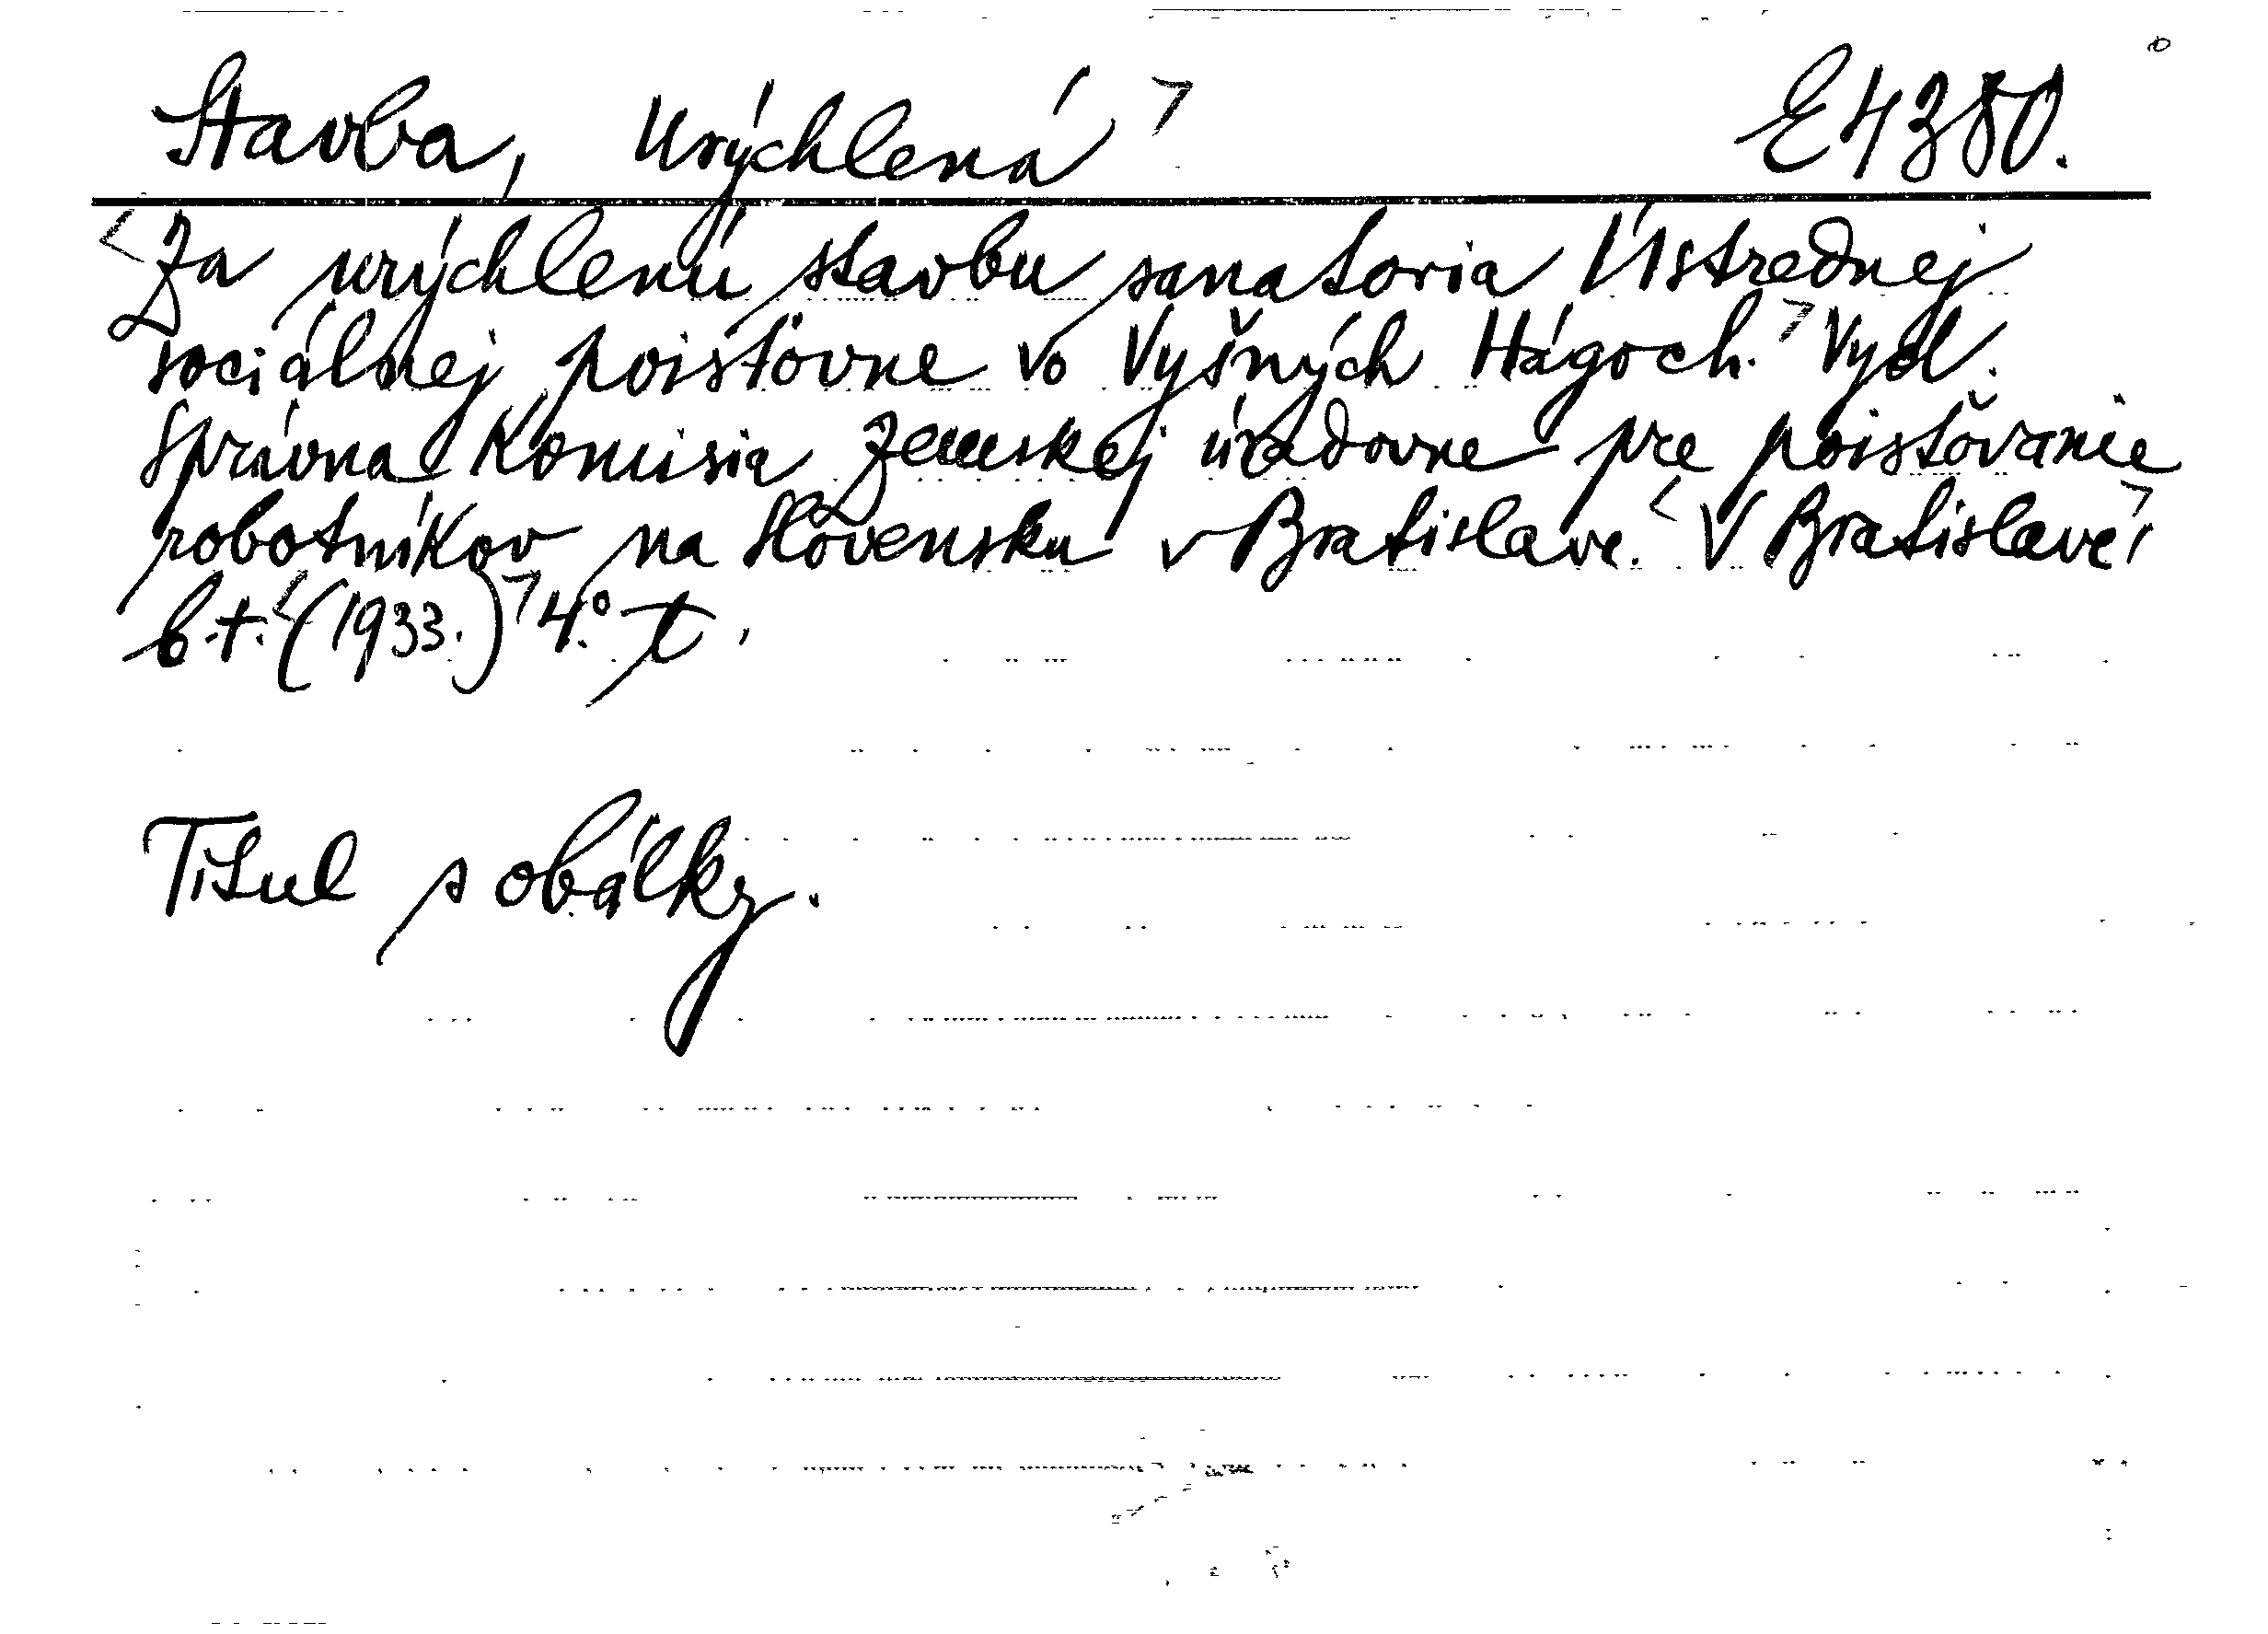 Stavba, Urýchlená E4380.
Za urýchlenú stavbu sanatoria Ústrednej
sociálnej poisťovne vo Vyšných Hágoch. Vyd.
Správna Komisia Zemskej úradovne pre poisťovanie
robotníkov na Slovensku v Bratislave. V Bratislave,
b.t. (1933.) 4.°
Titul s obálky.